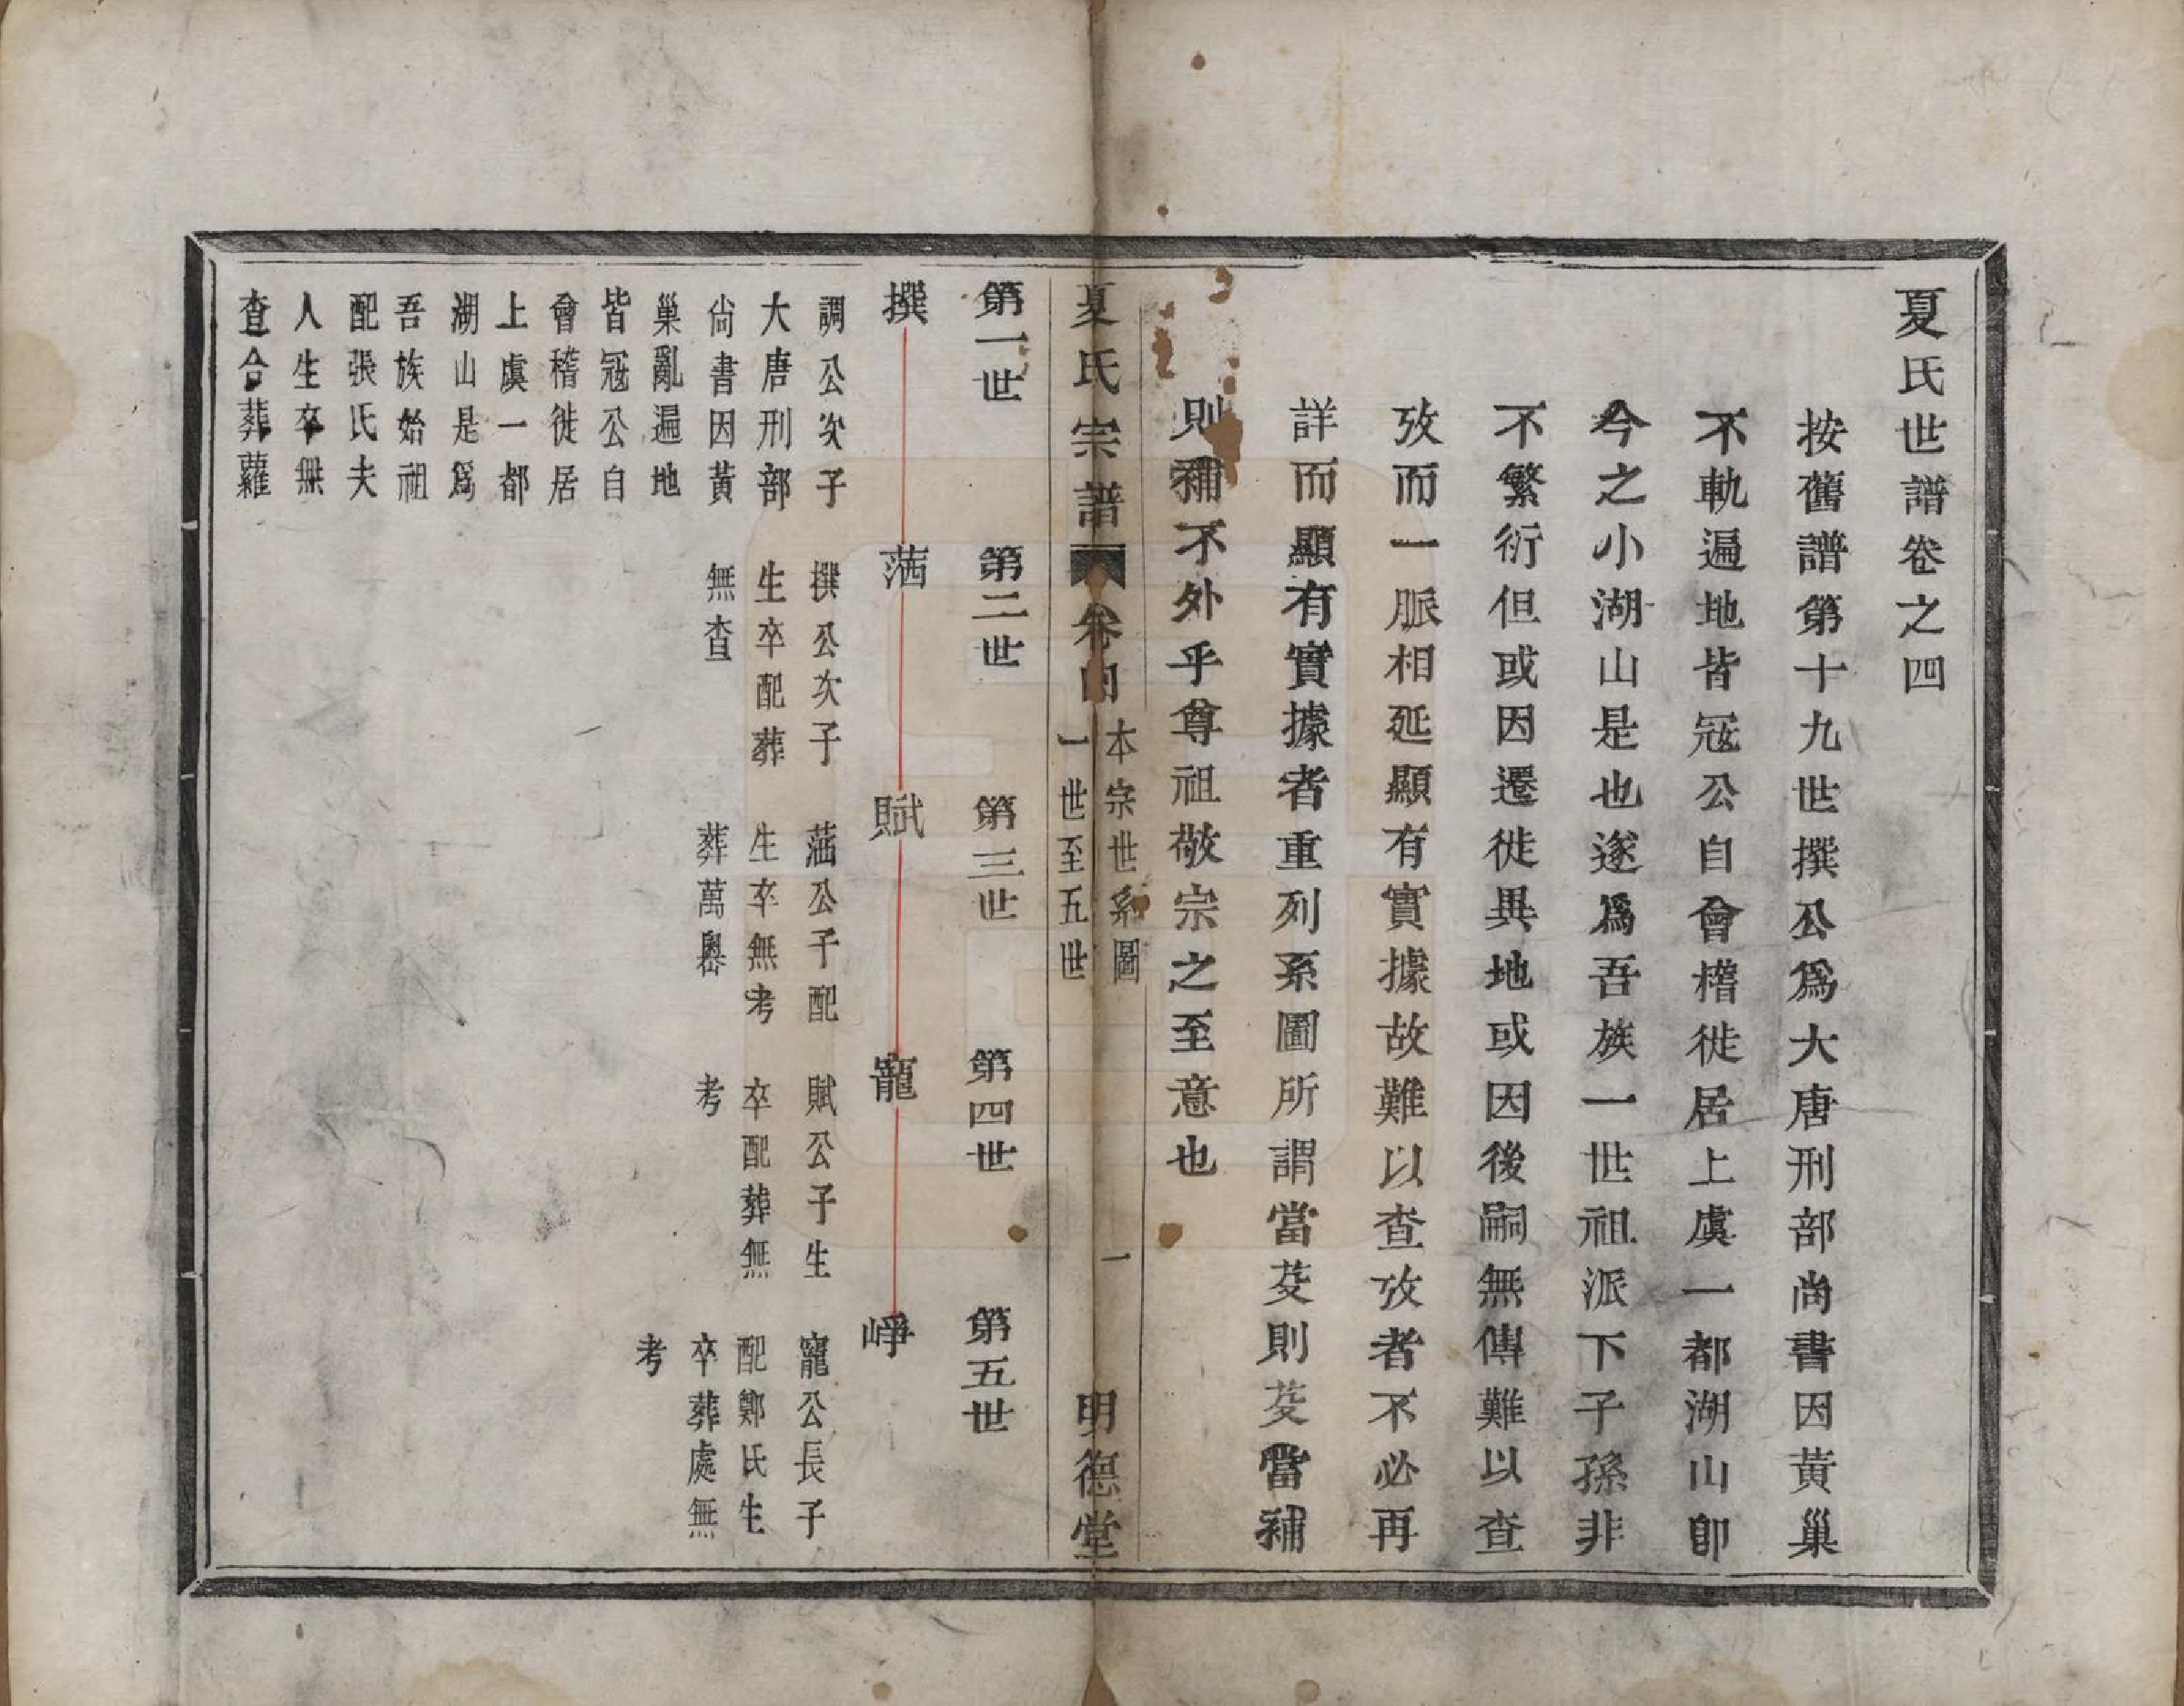 夏氏世譜卷之四
按舊譜第十九世撰公爲大唐刑部尚書因黃巢
不軌遍地皆寇公自會稽徙居上虞一都湖山卽
今之小湖山是也遂爲吾族一世祖派下子孫非
不繁衍但或因遷徙異地或因後嗣無傳難以查
攷而一脈相延顯有實據故難以查攷者不必再
詳而顯有實據者重列系圖所謂當芟則芟當補
則補不外乎尊祖敬宗之至意也
夏氏宗譜 卷四 本宗世系圖 一世至五世 一 明德堂
第一世
第二世
第三世
第四世
第五世
撰
賦
寵
崢
調公次子
大唐刑部
尙書因黃
巢亂遍地
皆寇公自
會稽徙居
上虞一都
湖山是爲
吾族始祖
配張氏夫
人生卒無
查合葬蘿
撰公次子
生卒配葬
無查
公子配
生卒無考
葬萬嶴
賦公子生
卒配葬無
考
寵公長子
配鄭氏生
卒葬處無
考